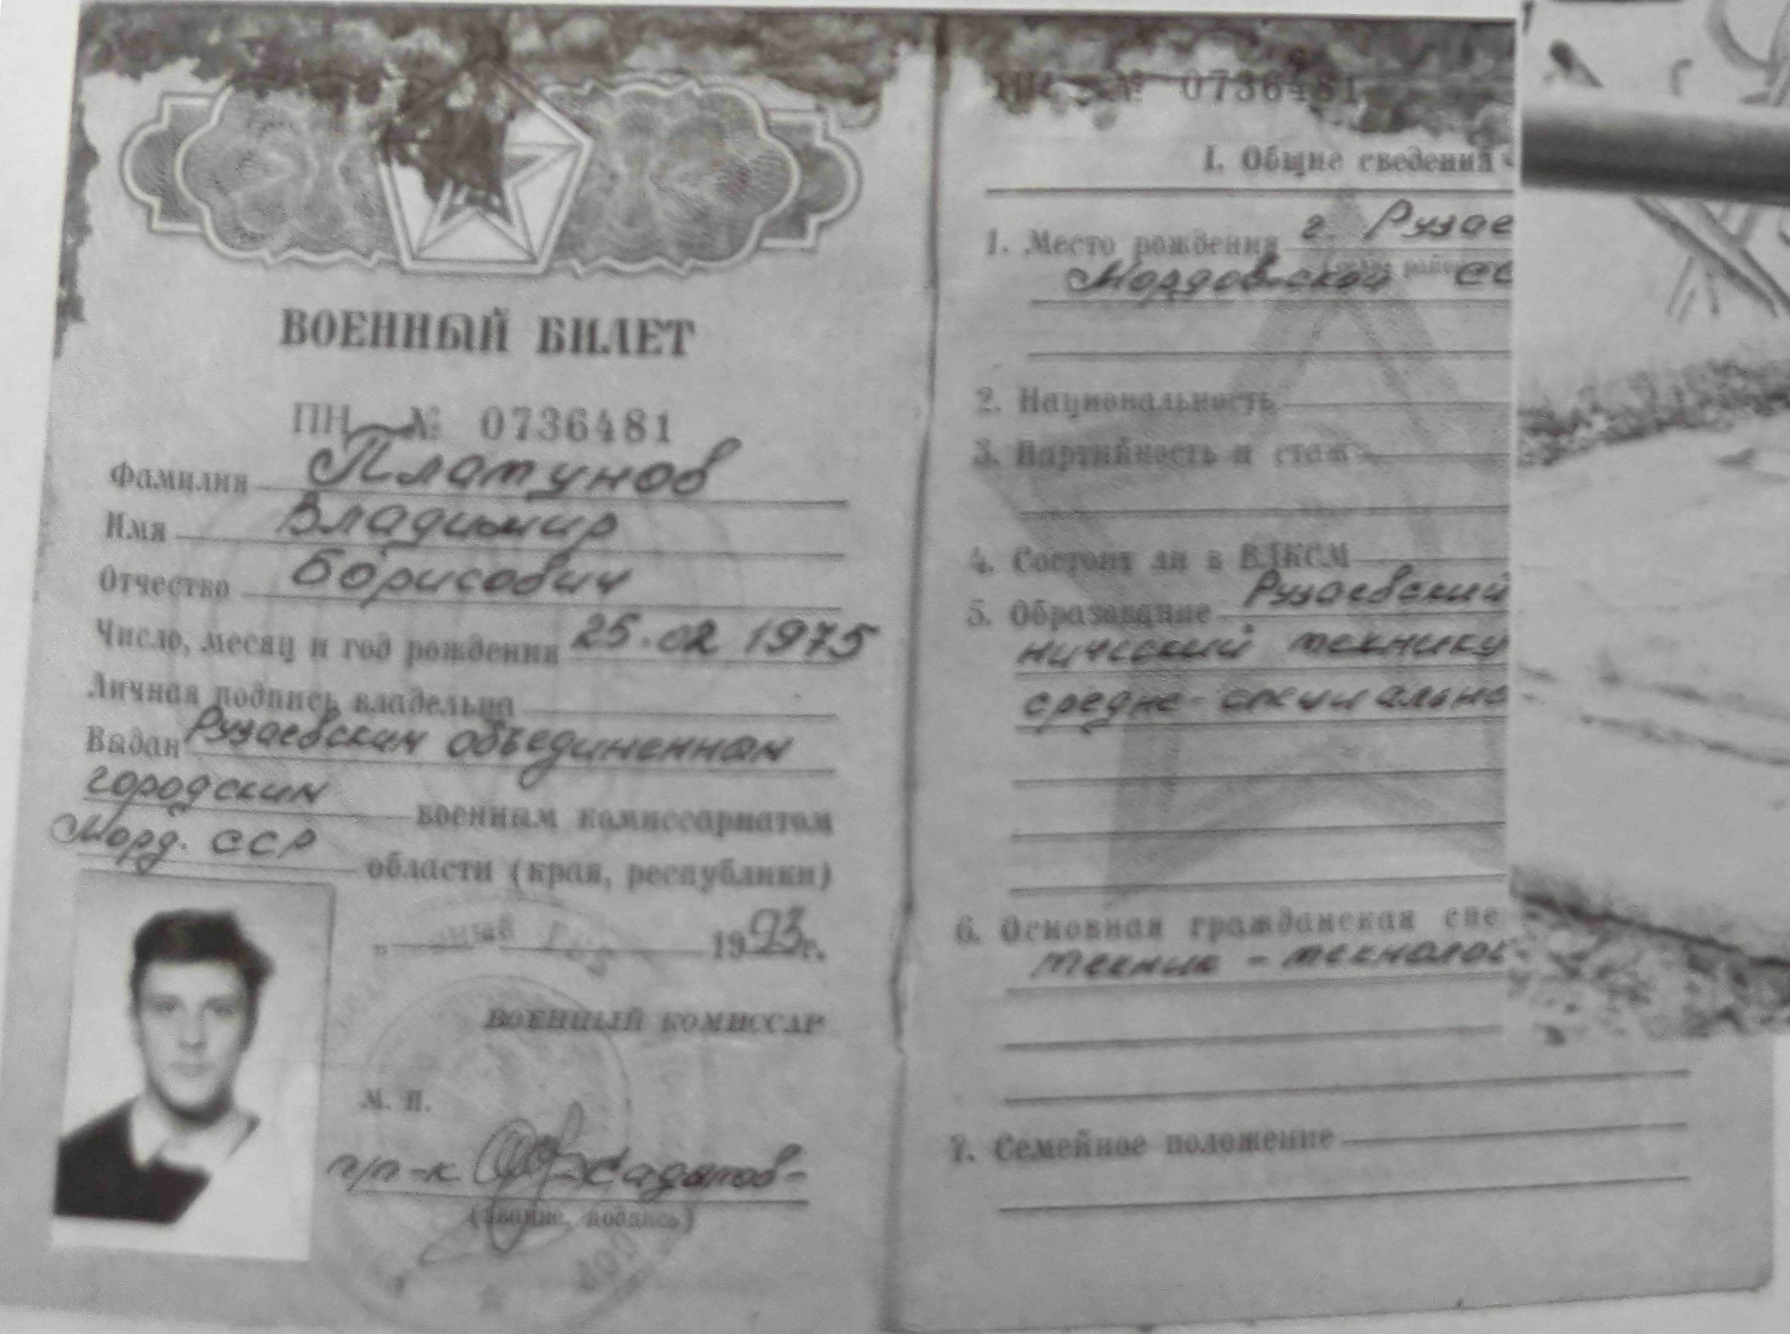 ВОЕННЫЙ БИЛЕТ
ПН № 0736481
Фамилия Платунов
Имя Владимир
Отчество Борисович
Число, месяц и год рождения 25.02 1975
Личная подпись владельца
Выдан Рузаевским объединенным
городским военным комиссариатом
Морд. ССР области (края, республики)
1993 г.
ВОЕННЫЙ КОМИССАР
М. П.
п/п-к
(звание, подпись)
ПН № 0736481
I. Общие сведения
1. Место рождения г. Рузае
Мордовской СС
2. Национальность
3. Партийность и стаж
4. Состоит ли в ВЛКСМ
5. Образование Рузаевский
нический технику
средне-специально
6. Основная гражданская спе
техник - технолог
7. Семейное положение